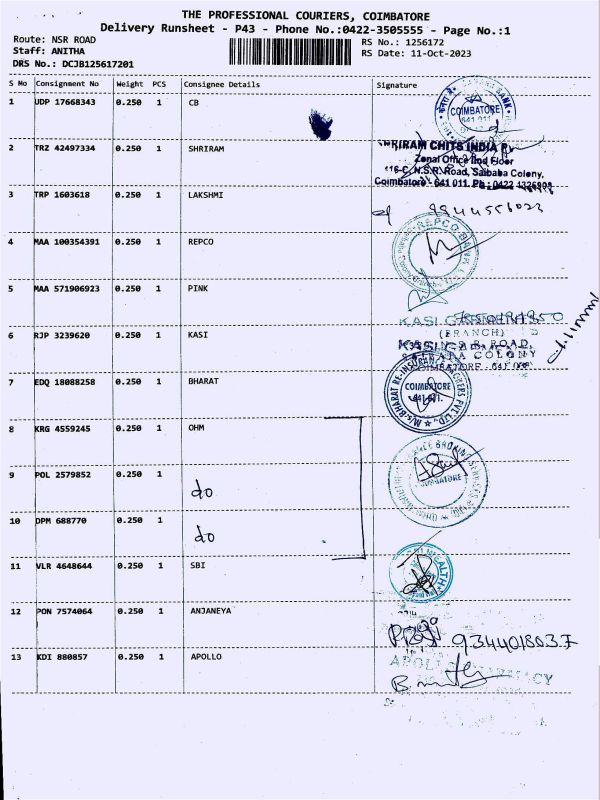 THE PROFESSIONAL COURIERS, COIMBATORE
Delivery Runsheet - P43 - Phone No.:0422-3505555 - Page No.:1
Route: NSR ROAD
Staff: ANITHA
DRS No.: DCJB125617201
RS No.: 1256172
RS Date: 11-Oct-2023
S No Consignment No Weight PCS Consignee Details Signature
1 UDP 17668343 0.250 1 CB
COIMBATORE
641 011
2 TRZ 42497334 0.250 1 SHRIRAM
SHRIRAM CHITS INDIA
Zonal Office IInd Floor
N.S.R. Road, Saibaba Colony,
Coimbatore - 641 011. Ph: 0422
3 TRP 1603618 0.250 1 LAKSHMI
4 MAA 100354391 0.250 1 REPCO
REPCO BANK
5 MAA 571906923 0.250 1 PINK
KASI
(BRANCH)
ROAD,
COLONY
COIMBATORE
6 RJP 3239620 0.250 1 KASI
7 EDQ 18088258 0.250 1 BHARAT
M/s. BHARAT RE-INSURANCE BROKERS PVT. LTD.
COIMBATORE
641 011.
8 KRG 4559245 0.250 1 OHM
9 POL 2579852 0.250 1 do
10 DPM 688770 0.250 1 do
11 VLR 4648644 0.250 1 SBI
WEALTH
12 PON 7574064 0.250 1 ANJANEYA
9344018037
13 KDI 880857 0.250 1 APOLLO
APOLLO PHARMACY